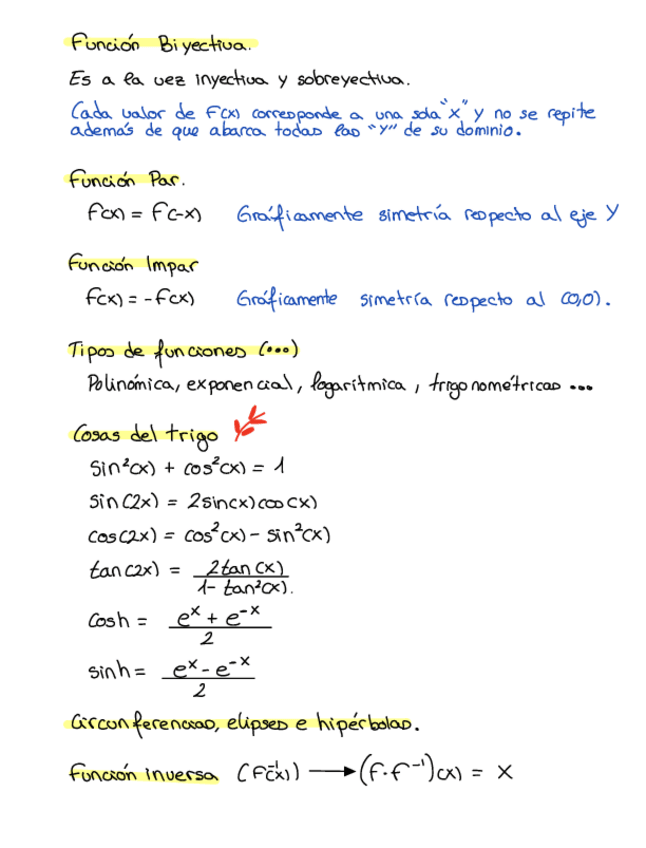 Función Biyectiva.
Es a la vez inyectiva y sobreyectiva.
Cada valor de f(x) corresponde a una sola "x" y no se repite
además de que abarca todas las "y" de su dominio.
Función Par.
f(x) = f(-x) Gráficamente simetría respecto al eje Y
Función Impar
f(x) = -f(x) Gráficamente simetría respecto al (0,0).
Tipos de funciones (...)
Polinómica, exponencial, logarítmica, trigonométricas ...
Cosas del trigo
Sin²(x) + cos²(x) = 1
sin(2x) = 2sin(x)cos(x)
cos(2x) = cos²(x) - sin²(x)
tan(2x) = 2tan(x) / 1 - tan²(x).
Cosh = e^x + e^-x / 2
sinh = e^x - e^-x / 2
Circunferencias, elipses e hipérbolas.
Función inversa (f^-1(x)) → (f·f^-1)(x) = x